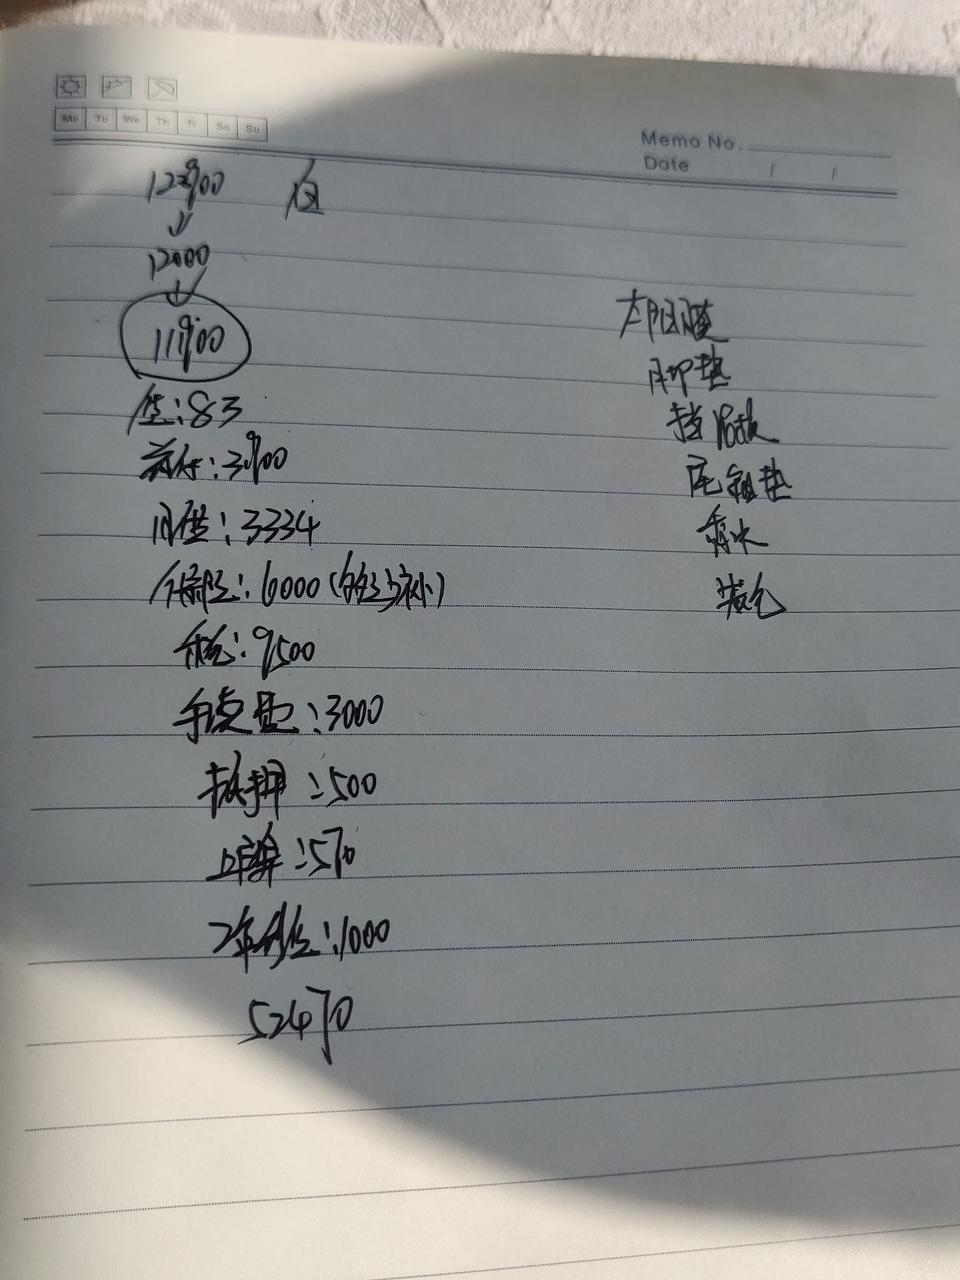 Mo Tu We Th Fr Sa Su
Memo No.
Date / /
122900 白
12000
111900
贷:83
首付:31900
月供:3334
保险:6000(多退少补)
税:9500
手续费:3000
抵押:500
上牌:570
2年利息:1000
52470
太阳膜
脚垫
挡泥板
尾箱垫
香水